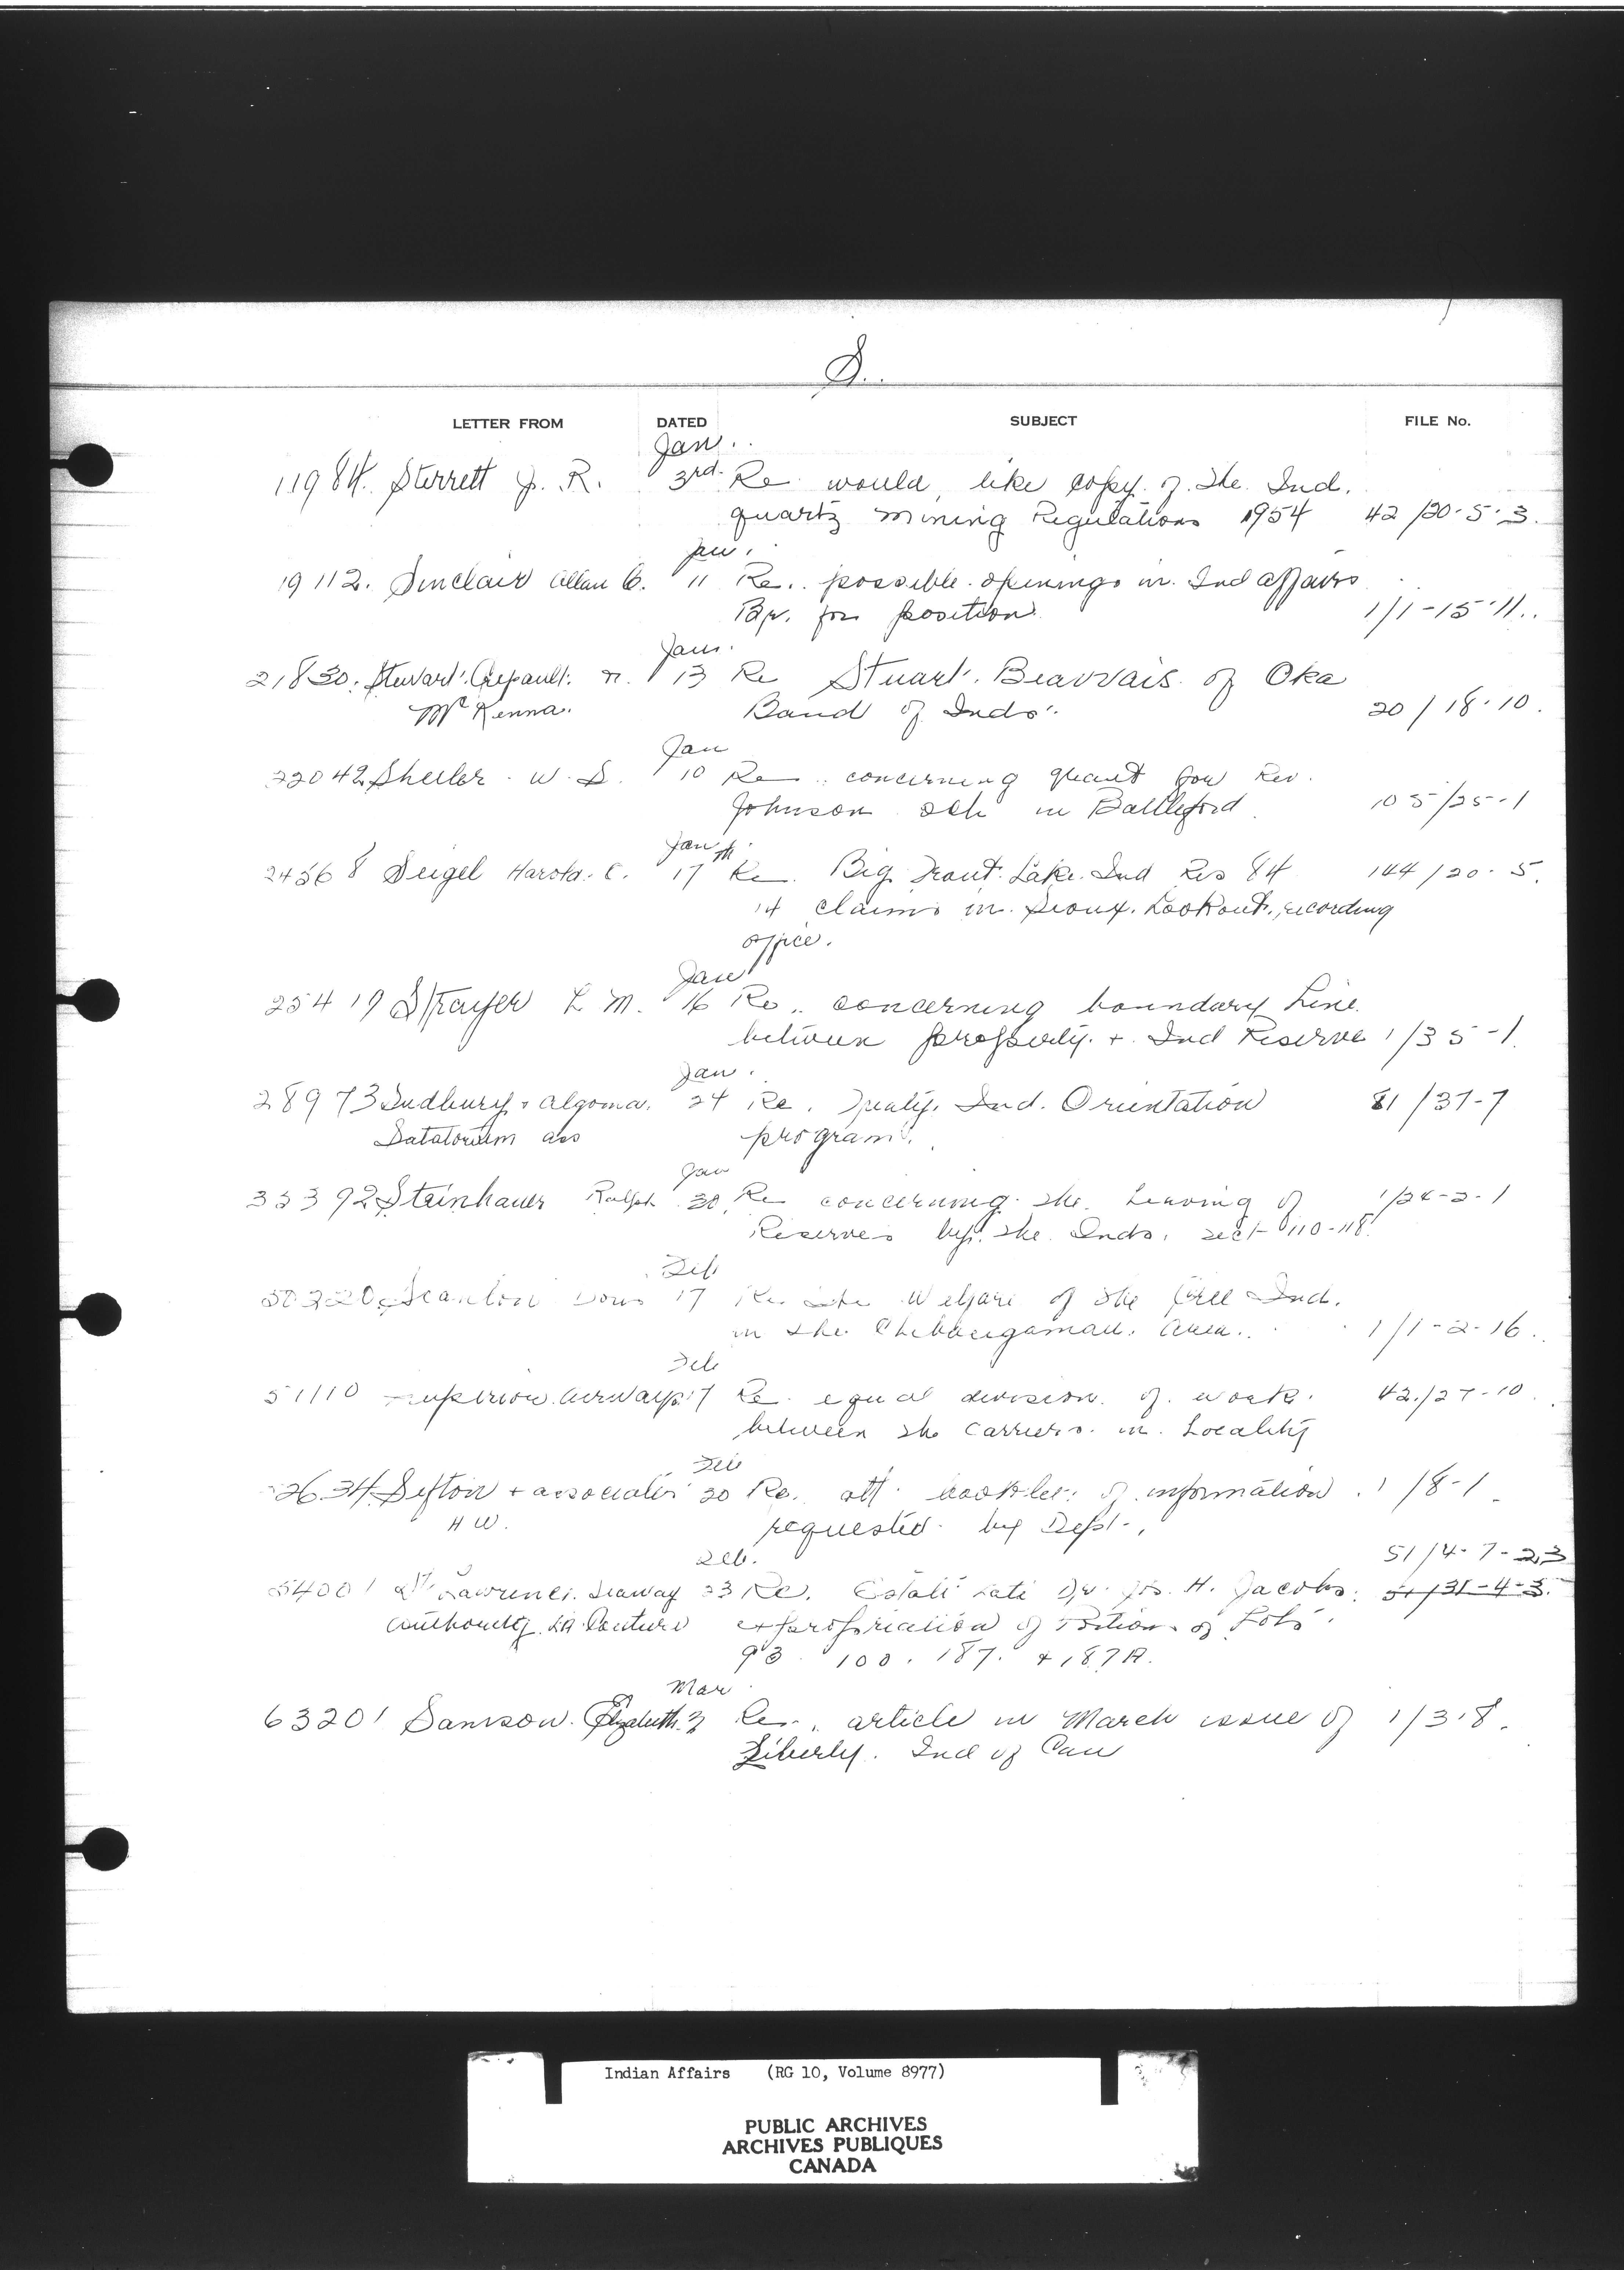 S.
LETTER FROM DATED SUBJECT FILE No.
Jan.
11984. Sterrett J. R. 3rd. Re would like copy of the Ind.
quartz mining Regulations 1954 42/20-5-3.
Jan.
19112. Sinclair Allan C. 11 Re. possible openings in Ind affairs
Br. for position 1/1-15-11..
Jan.
21830. Stewart. Crepault. n. 13 Re Stuart. Beauvais of Oka
McKenna. Band of Inds. 20/18-10.
Jan
22042 W. S. 10 Re concerning grant for Rev.
Johnson sch in Battleford 105/25-1
Jan
24568 Seigel Harold. C. 17th Re. Big Trout Lake Ind Res 84 144/20-5.
14 claims in Sioux Lookout, recording
office.
Jan
25419 Strayer L M. 16 Re.. concerning boundary Line
between property + Ind Reserve 1/35-1.
Jan.
28973 Sudbury + algoma. 24 Re. Treaty. Ind. Orientation 81/37-7
Satatorium ass program.
Jan
33392 Steinhauer Ralph 30. Re concerning the Leaving of 1/24-2-1
Reserves by the Inds. sect 110-118.
Feb
50320. Scanlon 17 Re. the Welfare of the Cree Ind.
in the Chibougamau. area.. 1/1-2-16..
Feb
51110 Superior Airways. 17 Re. equal division of work. 42./27-10.
between the Carriers. in. Locality
Feb
2634 Sefton + associates 20 Re. att. booklet of information. 1/8-1
H W. requested by Dept.,
Feb. 51/4-7-23
54001 St. Lawrence. Seaway 23 Re. Estate Late Dr. Jos. H. Jacobs. 51/31-4-3.
authority. LA Couture expropriation of Portion of Lots.
93 100. 187. + 187A.
Mar
63201 Samson. Elizabeth. Re. article in March issue of 1/3-8.
Liberty. Ind of Can
Indian Affairs (RG 10, Volume 8977)
PUBLIC ARCHIVES
ARCHIVES PUBLIQUES
CANADA